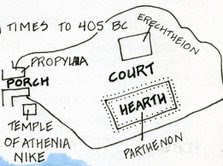 TIMES TO 405 BC
ERECHTHEION
PROPYLAIA
PORCH
COURT
HEARTH
TEMPLE
OF ATHENIA
NIKE
PARTHENON